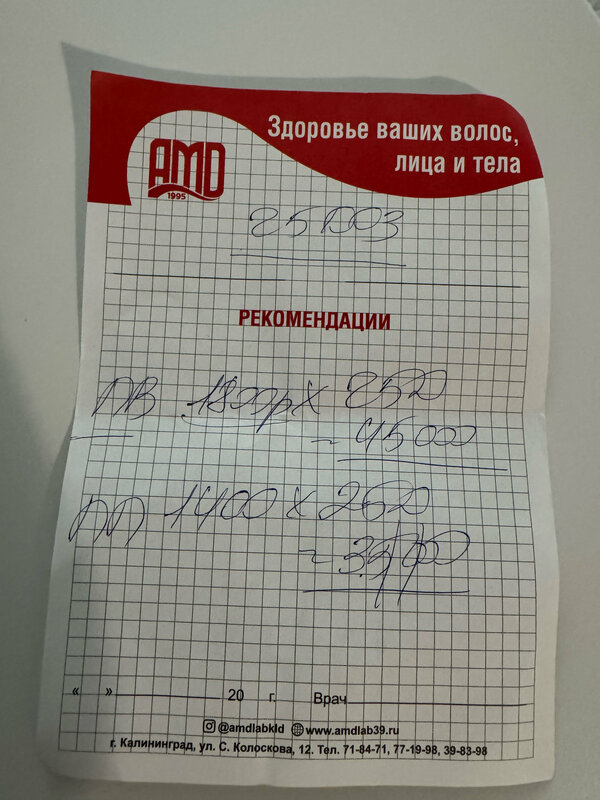 Здоровье ваших волос,
лица и тела
AMD
1995
25 DОЗ
РЕКОМЕНДАЦИИ
1800р х 25D
45000
1400 х 25D
« » 20 г. Врач
@amdlabkld www.amdlab39.ru
г. Калининград, ул. С. Колоскова, 12. Тел. 71-84-71, 77-19-98, 39-83-98